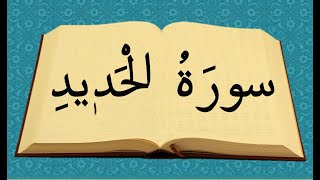 سورَةُ الْحَدٖيدِ